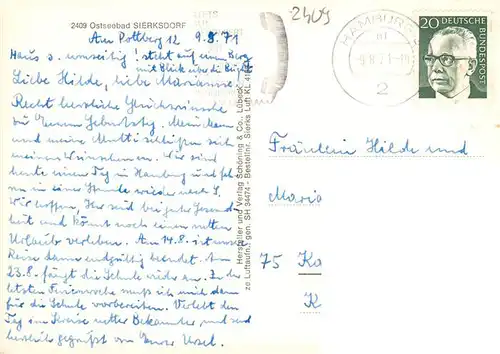 2409 Ostseebad SIERKSDORF
Am Pottberg 12 9.8.71
Haus s. umseitig! steht auf einem Berg
mit Blick über die Bucht
Liebe Hilde, liebe Marianne!
Recht herzliche Glückwünsche
zu Eurem Geburtstag. Mein Mann
und meine Mutti schließen sich
meinen Wünschen an. Wir sind
heute einen Tag in Hamburg und fah-
ren in einer Stunde wieder nach S.
Wir hoffen, Ihr seid bei guter Gesund-
heit und könnt noch einen netten
Urlaub verleben. Am 14.8. ist unsere
Reise dann endgültig beendet. Am
23.8. fängt die Schule wieder an. In der
letzten Ferienwoche muß ich mich dann
für die Schule vorbereiten. Verlebt den
Tag im Kreise netter Bekannter und seid
herzlich gegrüßt von Eurer Ursel.
Hersteller und Verlag Schöning & Co., Lübeck
ze.Luftaufn., gen. SH 94474 - Bestellnr. Sierks Luft KL
2409
HAMBURG
9.8.71
2
20 DEUTSCHE
BUNDESPOST
Fräulein Hilde und
Maria
75 Ka
K